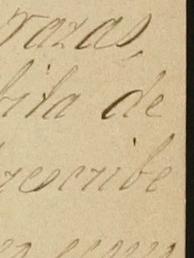 razas,
bita de
rescribe